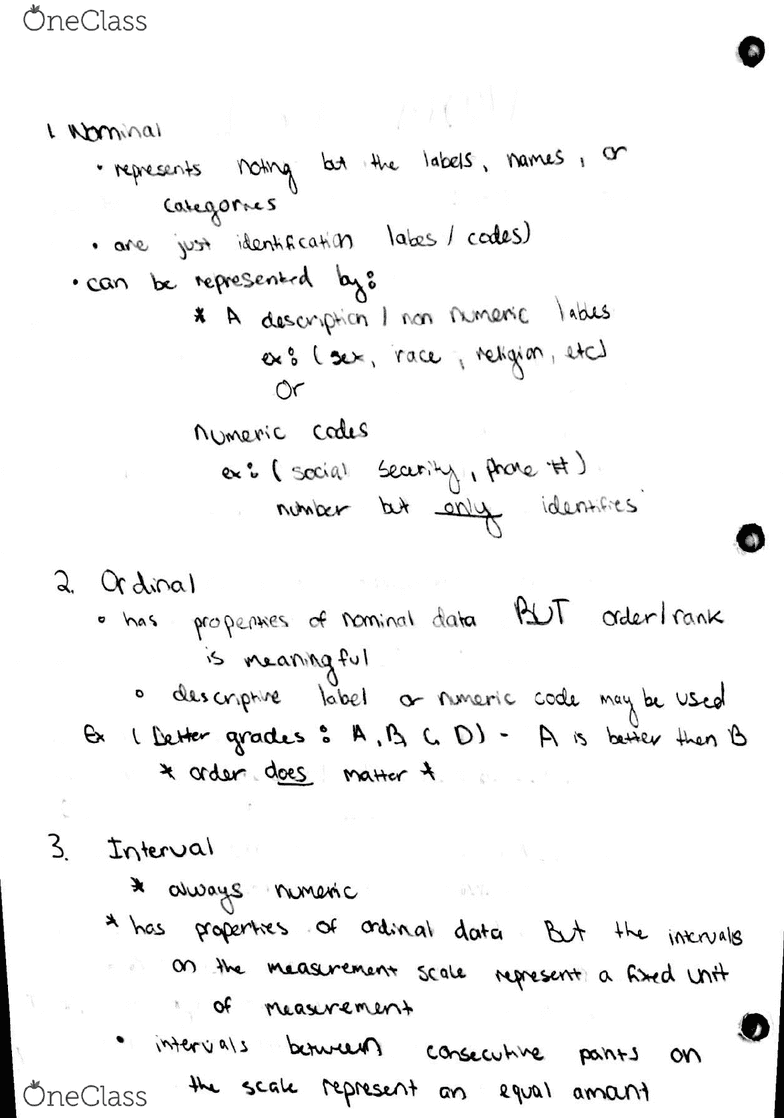 OneClass
1. Nominal
• represents noting but the labels, names, or
categories
• are just identification labes / codes)
• can be represented by:
* A description / non numeric lables
ex: (sex, race, religion, etc)
Or
numeric codes
ex: (social security, phone #)
number but only identifies
2. Ordinal
• has properties of nominal data BUT order/rank
is meaningful
• descriptive label or numeric code may be used
Ex (Letter grades: A, B, C, D) - A is better then B
* order does matter *
3. Interval
* always numeric
* has properties of ordinal data But the intervals
on the measurement scale represent a fixed unit
of measurement
• intervals between consecutive points on
the scale represent an equal amant
OneClass